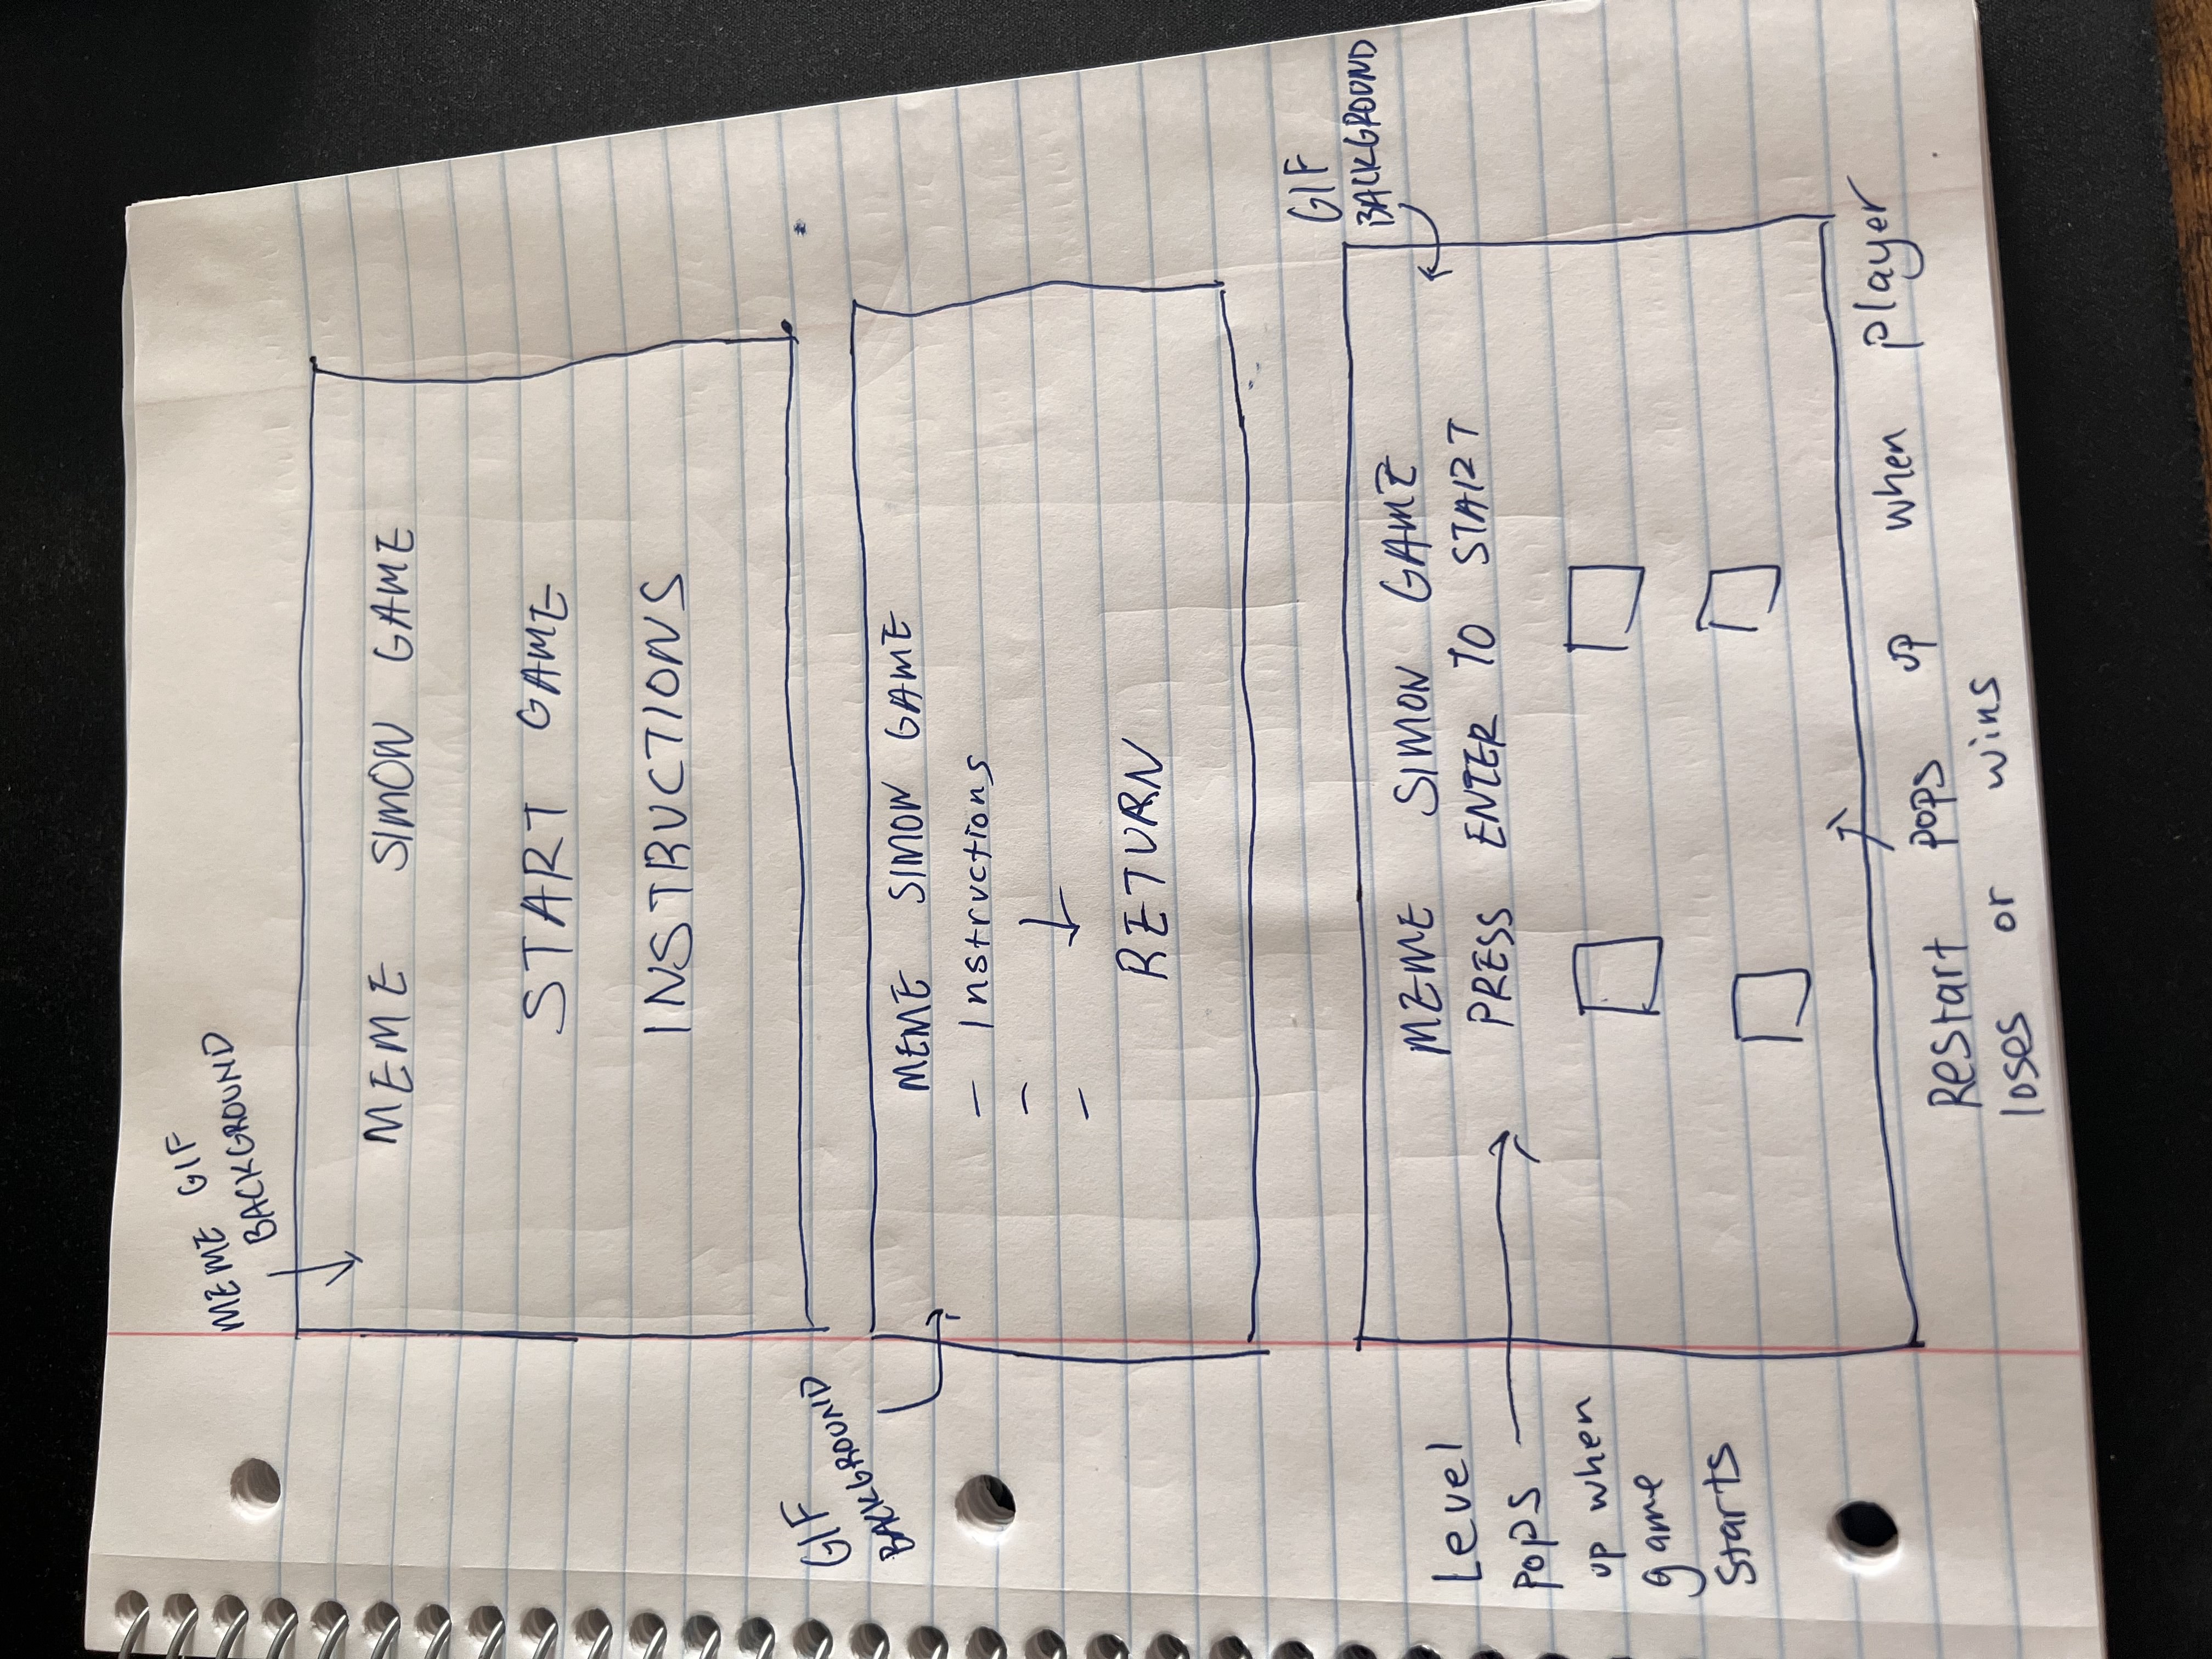 MEME GIF
BACKGROUND
MEME SIMON GAME
START GAME
INSTRUCTIONS
GIF
BACKGROUND
MEME SIMON GAME
- Instructions
-
-
RETURN
GIF
BACKGROUND
MEME SIMON GAME
PRESS ENTER TO START
Level
pops
up when
game
starts
Restart pops up when player
loses or wins